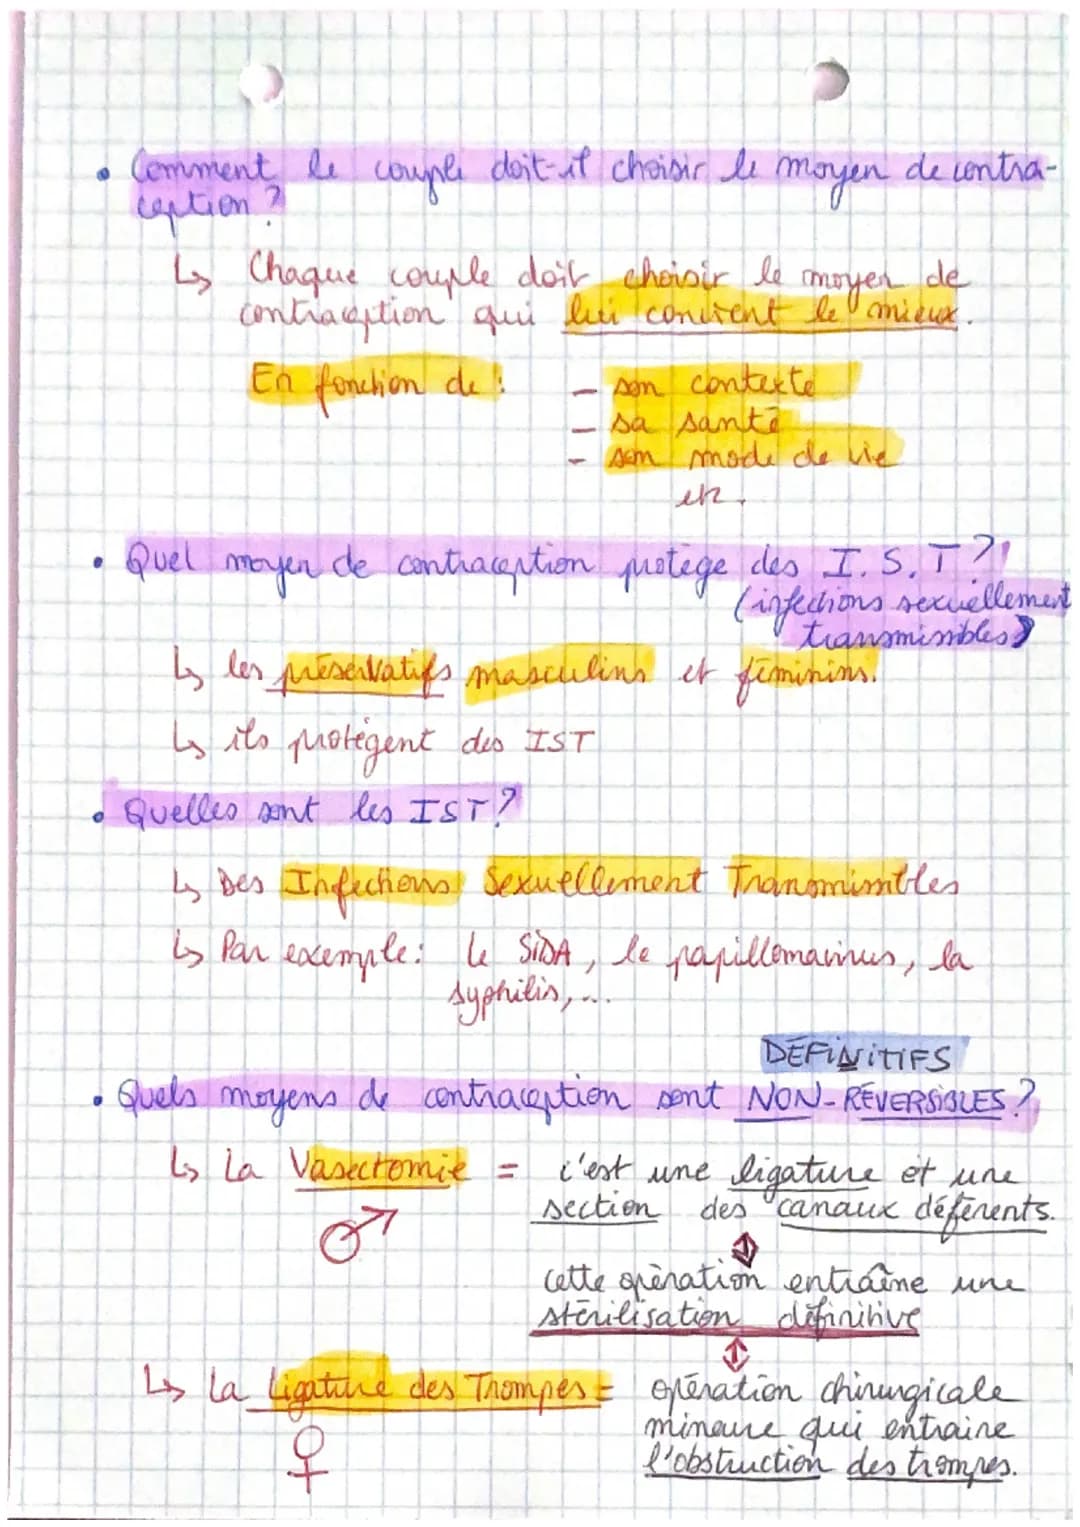 • Comment le couple doit-il choisir le moyen de contra-
ception ?
↳ Chaque couple doit choisir le moyen de
contraception qui lui convient le mieux.
En fonction de :
- son contexte
- sa santé
- son mode de vie
etc.
• Quel moyen de contraception protège des I.S.T ?
(infections sexuellement
transmissibles)
↳ les préservatifs masculins et féminins.
↳ ils protègent des IST
• Quelles sont les IST ?
↳ Des Infections Sexuellement Transmissibles
↳ Par exemple : le SIDA, le papillomavirus, la
syphilis,...
DÉFINITIFS
• Quels moyens de contraception sont NON-RÉVERSIBLES ?
↳ La Vasectomie = c'est une ligature et une
section des canaux déférents.
♂
cette opération entraîne une
stérilisation définitive
↳ La Ligature des Trompes = opération chirurgicale
mineure qui entraine
♀
l'obstruction des trompes.